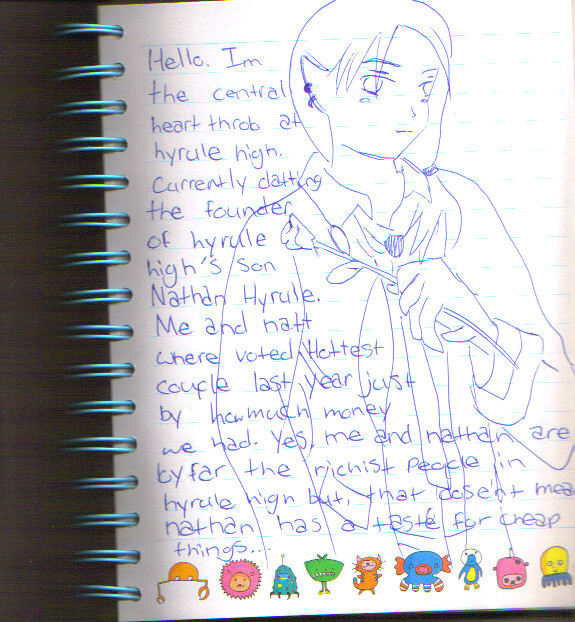 Hello. Im
the central
heart throb at
hyrule high.
Currently datting
the founder
of hyrule
high's son
Nathan Hyrule.
Me and natt
where voted Hottest
couple last year just
by how much money
we had. Yes, me and nathan are
by far the richist people in
hyrule high but, that dose'nt mean
nathan has a taste for cheap
things...